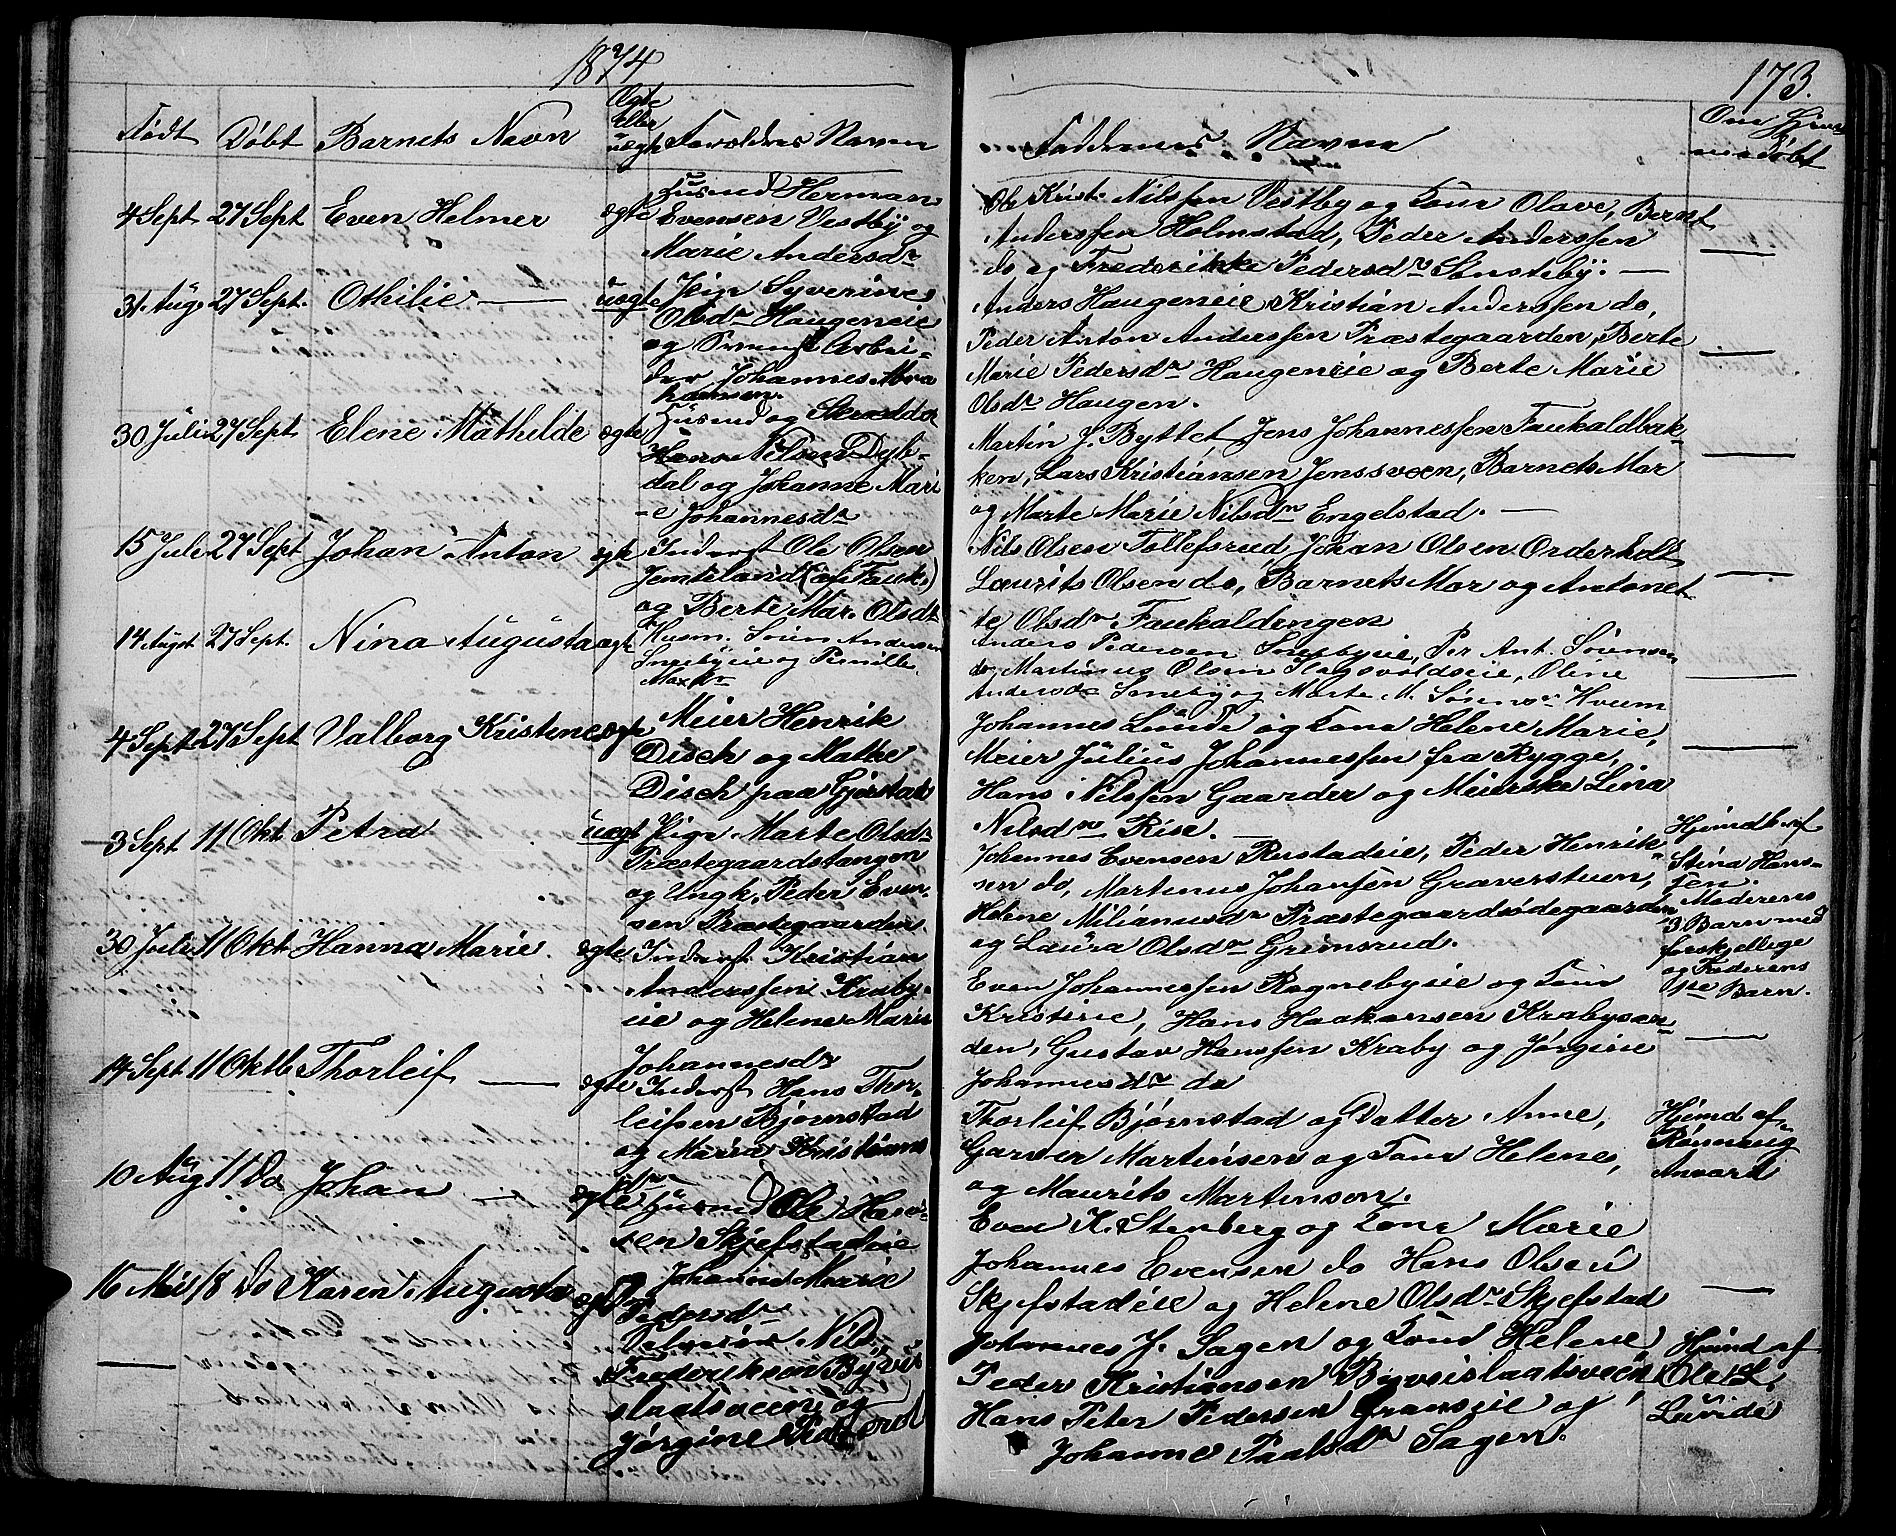 1874
173.
Født Døbt Barnets Navn Ægte eller uægte Forældres Navne
Faddernes Navne Om Hjemmedøbt
4 Sept 27 Sept Even Helmer ægte Husmd Herman
Evensen Vestby og
Marie Andersdr
Ole Krist. Nilssen Vestby og Kone Olave, Bernt
Anderssen Holmstad, Peder Anderssen
do og Frederikke Pedersdr Sønsteby. —
31 Aug. 27 Sept. Othilie — uægte Pige Syverine
Olsdr Haugeneie
og Svensk Arbei-
der Johannes
Anders Haugeneie, Kristian Anderssen do,
Peder Anton Anderssen Præstegaarden, Berte
Marie Pedersdr Haugeneie og Berte Marie
Olsdr Haugen. —
30 Juli 27 Sept Elene Mathilde ægte Husmd og
Hans Nilsen Dyb-
dal og Johanne Mari
-e Johannesdr
Martin J. Byttet, Jens Johannessen Faukaldbak-
ken, Lars Kristiansen Jenssveen, Barnets Mor
og Marte Marie Nilsdr Engelstad. —
15 Juli 27 Sept Johan Anton ægte Inderst Ole Olsen
Jemteland (af Fauk.)
og Berte Mar. Olsdr
Nils Olsen Tollefsrud, Johan Olsen
Laurits Olsen do, Barnets Mor og Antonet-
te Olsdr Faukaldengen
14 Augst 27 Sept. Nina Augusta ægte Husm. Søren Andersen
Snebyeie og Pernille
Maxdr
Anders Pedersen Snebyeie, Per Ant. Sørensen
do, Martinus Olsen Slagsvoldseie, Oline
Andersdr Sneby og Marte M. Hveem
4 Sept 27 Sept Valborg Kristine ægte Meier Henrik
Disch og Mathe
Disch paa Gjørstad
Johannes Lunde og Kone Helene Marie,
Meier Julius Johannessen fra Rygge,
Hans Nilssen Gaarder og Meierske Lina
Nilsdr Rise. —
3 Sept 11 Okt Petra uægt Pige Marte Olsdr
Præstegaardstangen
og Ungk. Peder Even-
sen Præstegaarden
Johannes Evensen Rustadeie, Peder Henrik-
sen do, Martinus Johansen Graverstuen,
Helene Milianusdr Præstegaardsødegaarden
og Laura Olsdr Grimsrud.
Hjemdb. af
Stina Hans-
sen.
Moderens
3. Barn med
forskjellige
og Faderens
1ste Barn.
30 Juli 11 Okt Hanna Marie. ægte Inderst Kristian
Anderssen Kraby-
eie og Helene Marie
Johannesdr
Even Johannessen Rognebyeie og Kone
Kristine, Hans Haakansen Krabysan-
den, Gustav Hanssen Kraby og Jørgine
Johannesdr do
14 Sept 11 Oktb Thorleif — ægte Inderst Hans Thor-
leifsen Bjørnstad
og Maria
Thorleif Bjørnstad og Datter Anne,
Garder Martinsen og Kone Helene,
og Maurits Martinsen.
Hjemd af
Rønnaug
10 Aug 11 Do Johan — ægte Husmd Ole Hans-
sen Skjefstadeie
og Johanne Marie
Pedersdr
Even K. Stenberg og Kone Marie
Johannes Evensen do Hans Olsen
Skjefstadeie og Helene Olsdr Skjefstad
16 Mai 18 Do Karen Augusta ægte Nils
Frederiksen Byvei-
slaatsveen og
Jørgine Pedersd
Johannes J. Sagen og Kone Helene,
Peder Kristiansen Byveislaatsveen,
Hans Peter Pedersen Granseie og
Johanne Paulsdr Sagen.
Hjemd af
Ole L.
Lunde